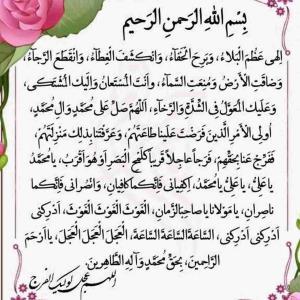 بِسْمِ اللهِ الرَحمنِ الرَحیم
اِلهی عَظُمَ الْبَلاءُ، وَبَرِحَ الْخَفآءُ، وَانْکَشَفَ الْغِطآءُ، وَانْقَطَعَ الرَّجآءُ،
وَضاقَتِ الْاَرْضُ وَمُنِعَتِ السَّمآءُ، وَاَنْتَ الْمُسْتَعانُ وَاِلَیْكَ الْمُشْتَکی،
وَعَلَیْكَ الْمُعَوَّلُ فِی الشِّدَّةِ وَالرَّخآءِ، اَللّهُمَّ صَلِّ عَلی مُحَمَّدٍ وَ الِ مُحَمَّدٍ،
اُولِی الْاَمْرِ الَّذینَ فَرَضْتَ عَلَیْنا طاعَتَهُمْ، وَعَرَّفْتَنا بِذلِكَ مَنْزِلَتَهُمْ،
فَفَرِّجْ عَنا بِحَقِّهِمْ، فَرَجاً عاجِلاً قَریباً کَلَمْحِ الْبَصَرِ اَوْ هُوَ اَقْرَبُ، یا مُحَمَّدُ
یا عَلِیُّ، یا عَلِیُّ یا مُحَمَّدُ، اِکْفِیانی فَاِنَّکُما کافِیانِ، وَانْصُرانی فَاِنَّکُما
ناصِرانِ، یا مَوْلانا یا صاحِبَ الزَّمانِ، الْغَوْثَ الْغَوْثَ الْغَوْثَ، اَدْرِکْنی
اَدْرِکْنی اَدْرِکْنی، السّاعَةَ السّاعَةَ السّاعَةَ، الْعَجَلَ الْعَجَلَ الْعَجَلَ، یا اَرْحَمَ
الرّاحِمینَ، بِحَقِّ مُحَمَّدٍ وَ آلِهِ الطّاهِرینَ.
اللهم عجل لولیک الفرج